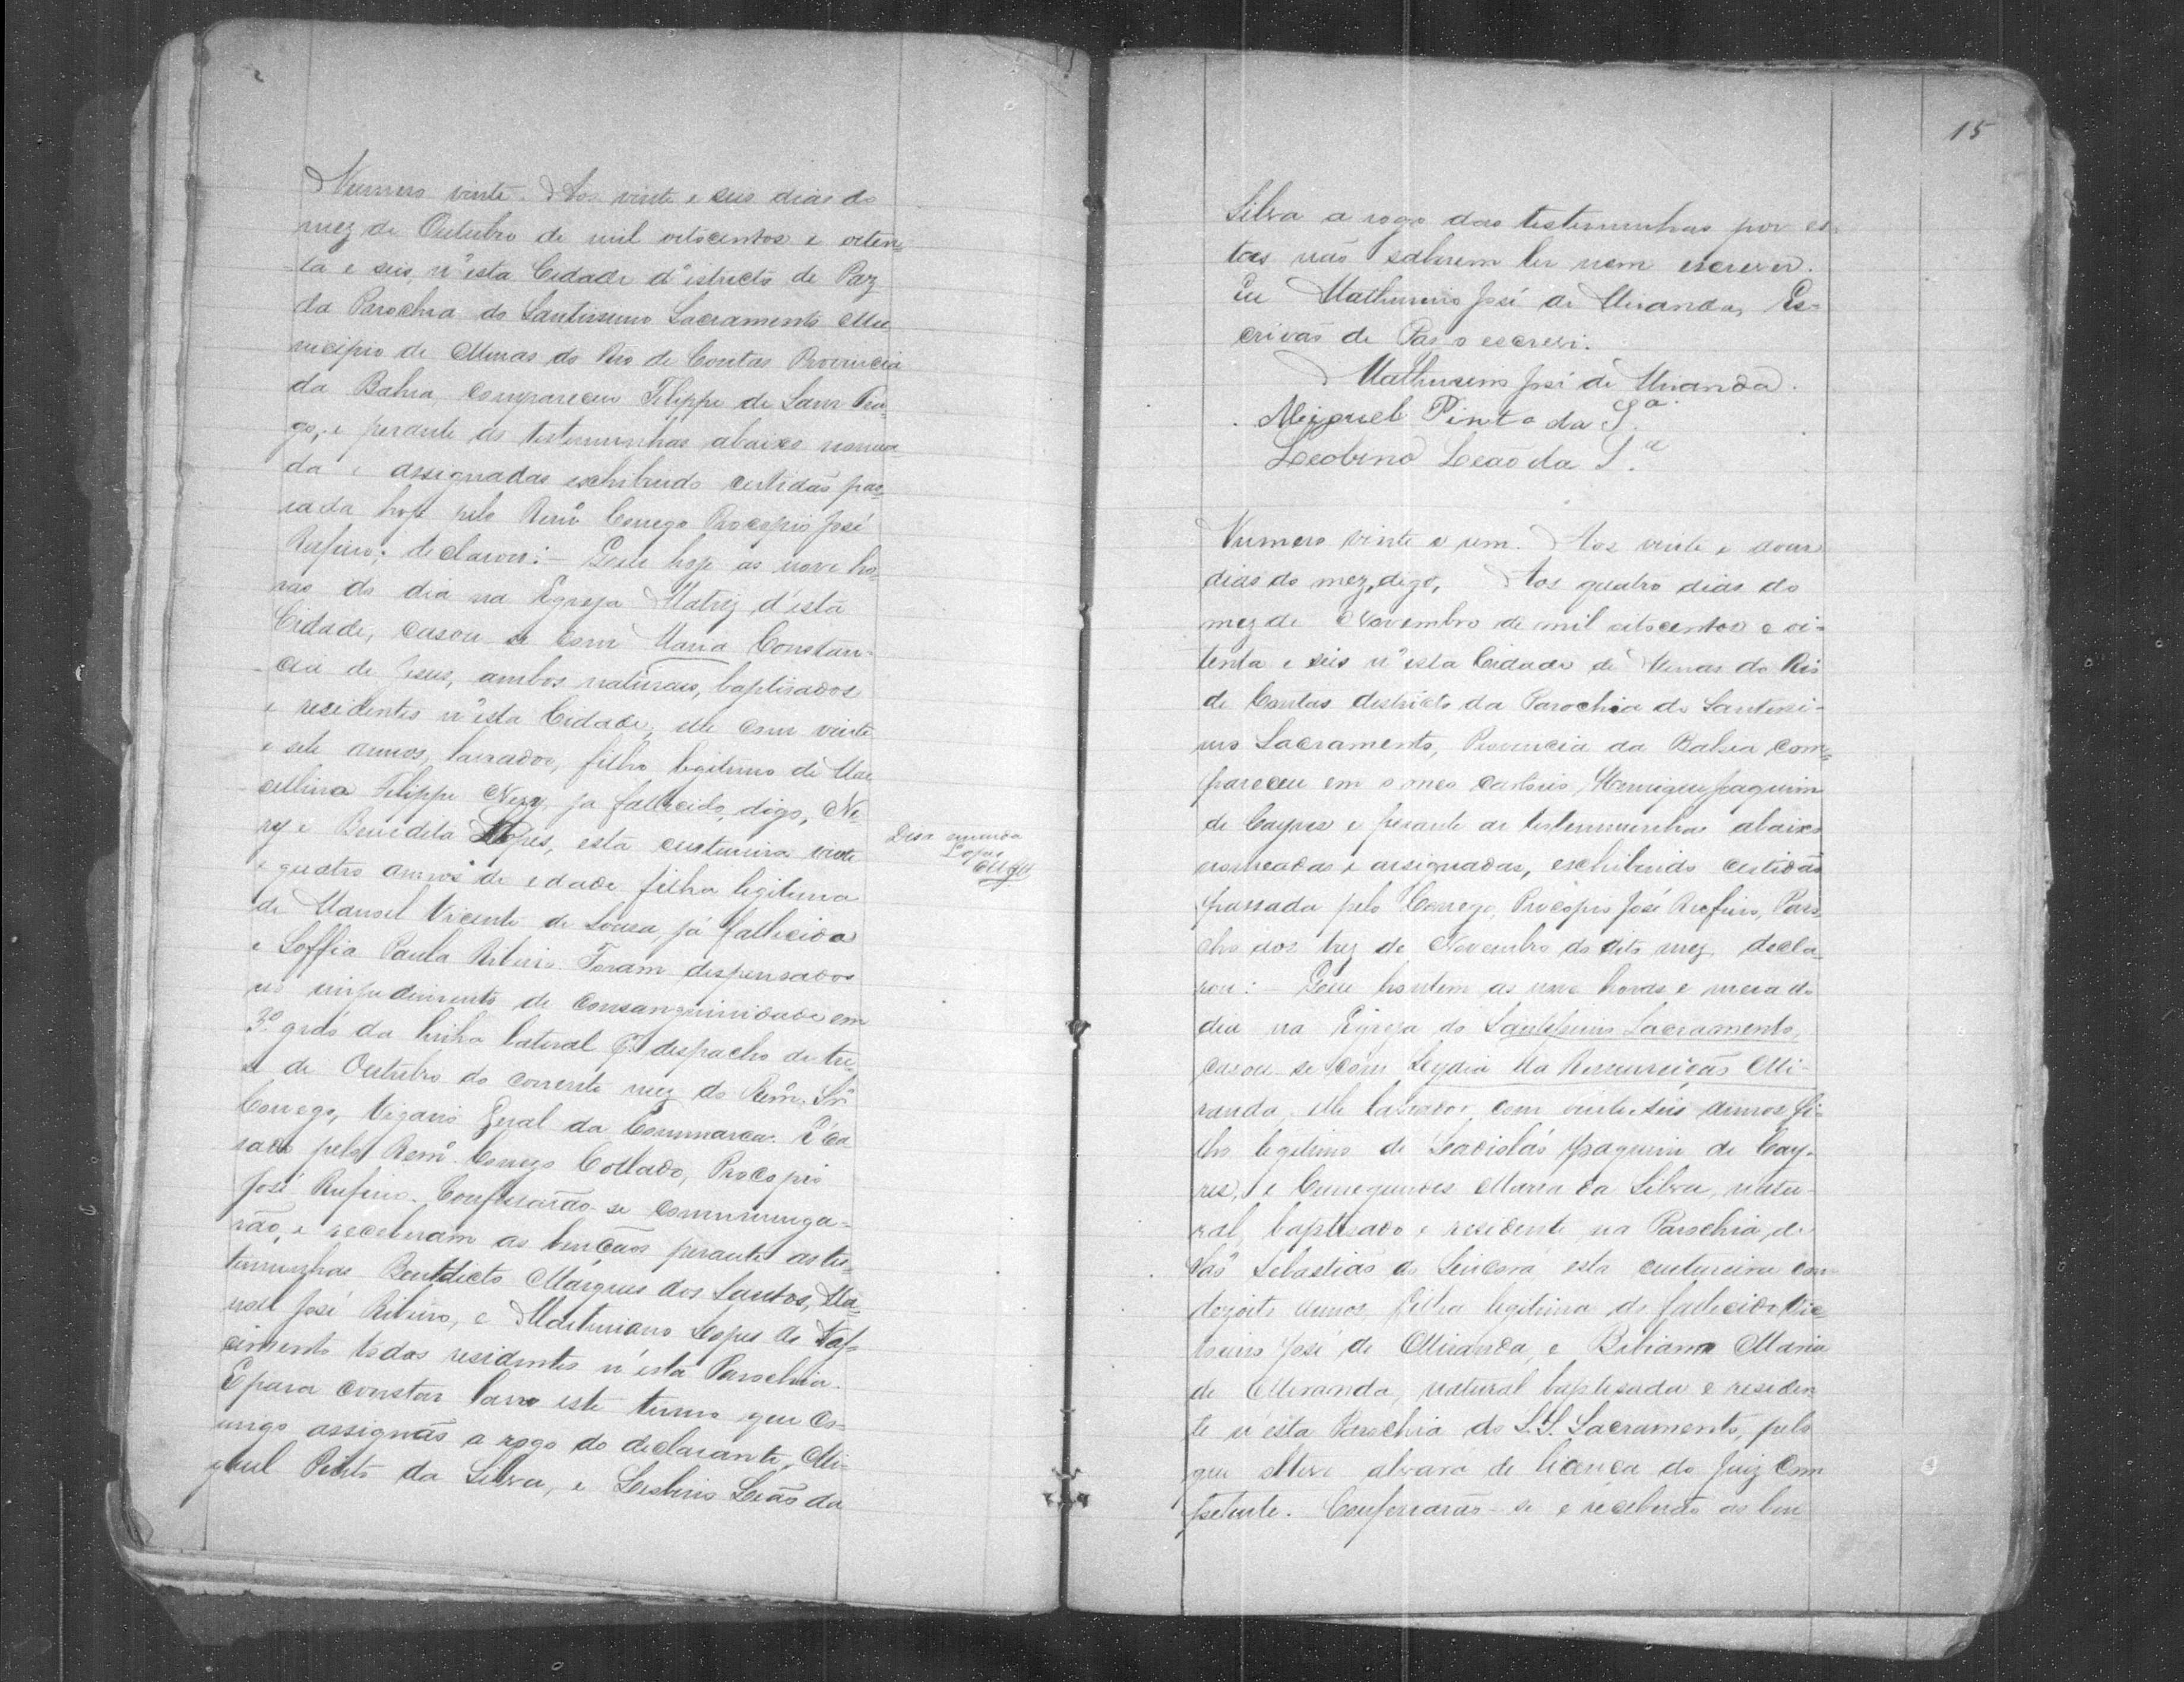 Numero vinte. Aos vinte e seis dias do
mez de Outubro de mil oitocentos e oiten=
ta e seis, n'esta Cidade d'istricto de Paz
da Parochia do Santissimo Sacramento Mu
nicipio de Minas do Rio de Contas Provincia
da Bahia, compareceu Filippe de Sam Tia-
go, e perante as testemunhas abaixo nomea
da e assignadas exhibindo certidão pas-
sada hoje pelo Remº Conego Procopio José
Rufino; declarou: - Que hoje as nove ho-
ras do dia na Egreja Matriz d'esta
Cidade, casou-se com Maria Constan-
cia de Jesus, ambos naturaes, baptisados
e residentes n'esta Cidade, elle com vinte
e sete annos, lavrador, filho legitimo de Mar
cellino Filippe Nery, ja fallecido, digo, Ne-
ry e Benedita Lopes, esta custureira vinte
e quatro annos de edade filha legitima
de Manoel Vicente de Sousa, já fallecido
e Soffia Paula Ribeiro. Foram dispensados
no impedimento de Consanguinidade em
3º gráo da linha lateral P. despacho de tre-
se de Outubro do corrente mez do Remº Snr
Conego, Vigario Geral da Commarca. E ca
sado pelo Remº Conego Collado, Procopio
José Rufino. Confessarão-se communga-
rão, e receberam as bençãos perante as tes-
temunhas Bendicto Marques dos Santos, Ma-
noel José Ribeiro, e Maturiano Lopes do Nas
cimento todos residentes n'esta Parochia.
E para constar lavro este termo que co-
migo assignão a rogo do declarante, Mi-
guel Pinto da Silva, e Leobino Leão da
Disa emenda
Lopes
Silva a rogo das testemunhas por es-
tas não saberem ler nem escrever.
Eu Mathusino José de Miranda, Es-
crivão de Pas o escrevi.
Mathusino José de Miranda.
Miguel Pinto da S.ª
Leobino Leão da S.ª
15
Numero vinte e um. Aos vinte e dous
dias do mez, digo, Aos quatro dias do
mez de Novembro de mil oitocentos e oi-
tenta e seis n'esta Cidade de Minas do Rio
de Contas districto da Parochia do Santissi-
mo Sacramento, Provincia da Bahia com=
pareceu em o meo cartorio, Henrique Joaquim
de Cayres e perante as testemunhas abaixo
nomeadas e assignadas, exhibindo certidão
passada pelo Conego, Procopio José Rufino, Paro
cho aos trez de Novembro do dito mez, decla-
rou: - Que hontem as nove horas e meia do
dia na Egreja do Santissimo Sacramento,
casou-se com Leydia da Ressurreição Mi-
randa, elle lavrador com vinte seis annos fi-
lho legitimo de Ladislão Joaquim de Cay-
res, e Cunegundes Maria da Silva, natu-
ral, baptisado e residente na Parochia, de
São Sebastião do Sincorá esta custureira com
dezoito annos, filha legitima do fallecido Vic-
torino José de Miranda, e Bibiana Maria
de Miranda, natural baptisada e residen
te n'esta Parochia do S.S. Sacramento, pelo
que obteve alvará de licença do Juiz Com
petente. Confessarão-se e receberão as ben